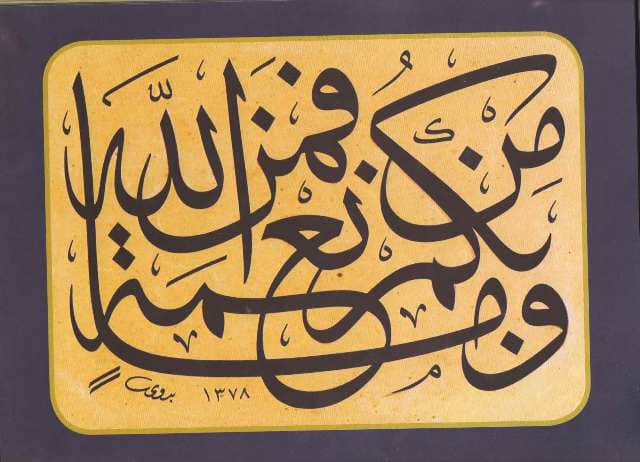 وما بكم من نعمة فمن الله
بدوي ١٣٧٨